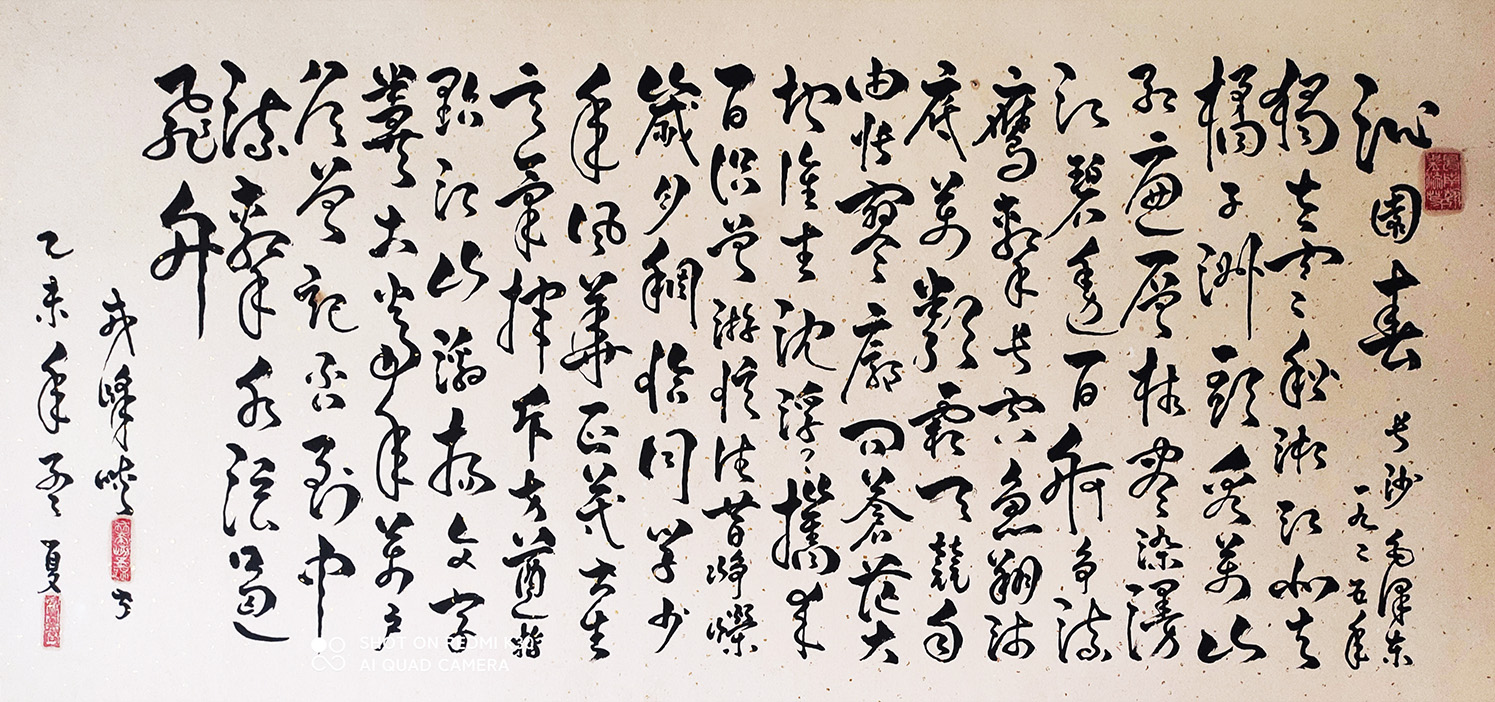 沁園春
长沙 毛澤东
一九二五年
獨立寒秋湘江北去
橘子洲頭看萬山
紅遍層林盡染漫
江碧透百舸争流
鷹擊長空魚翔淺
底萬類霜天競自
由悵寥廓問蒼茫大
地誰主沈浮攜来
百侣曾游憶往昔崢嶸
歲月稠恰同學少
年風華正茂书生
意氣揮斥方遒指
點江山激揚文字
糞土當年萬户
侯曾記否到中
流擊水浪遏
飛舟
乙未年孟夏
SHOT ON REDMI K30
AI QUAD CAMERA